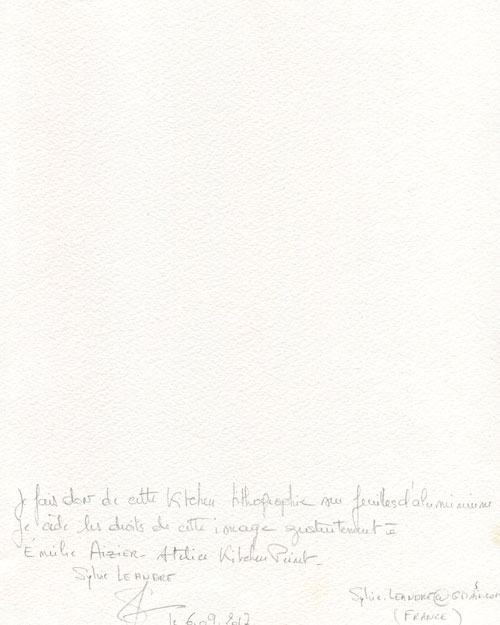 Je fais don de cette Kitchen lithographie sur feuilles d'aluminium
Je cède les droits de cette image gratuitement à
Émilie AIZIER - Atelier Kitchen Print -
Sylvie LEANDRE
le 6.09.2012
Sylvie.LEANDRE@
(FRANCE)